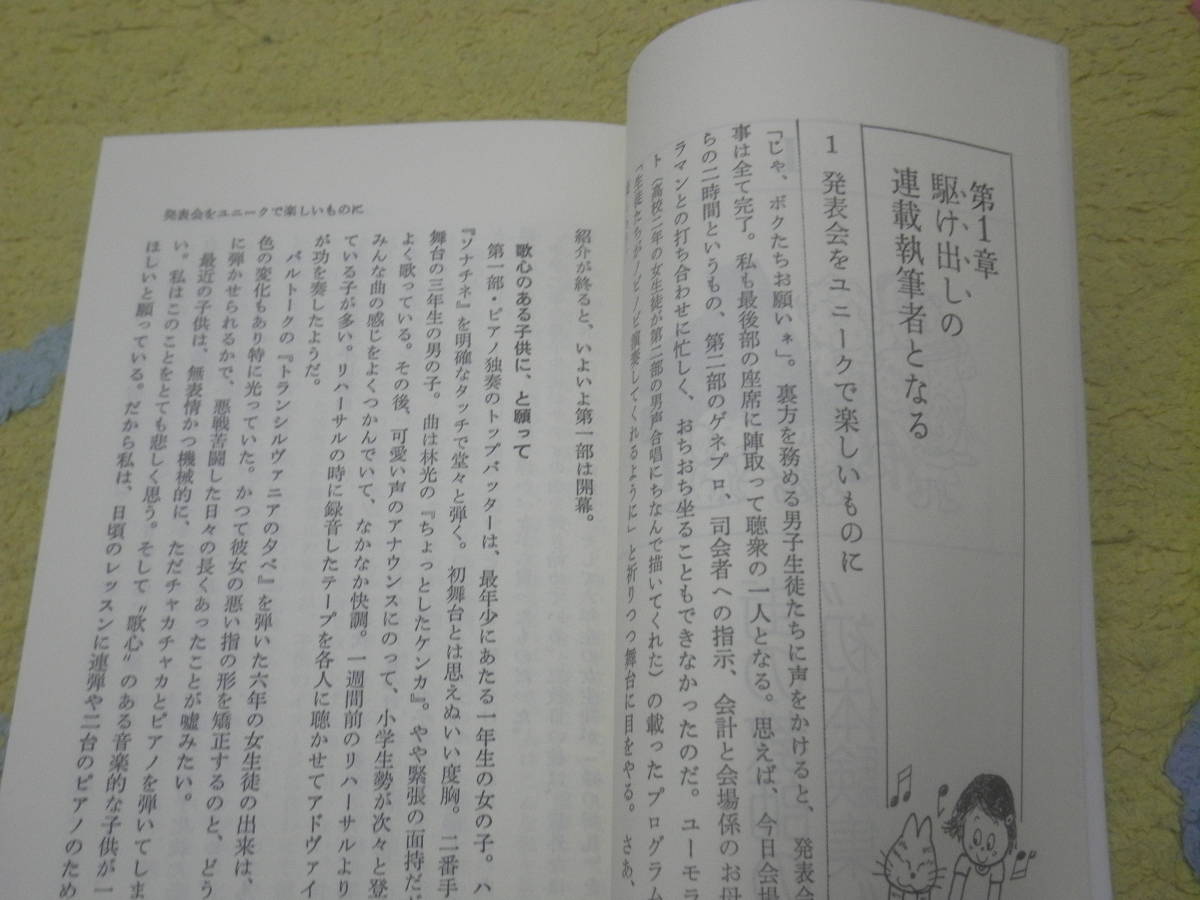 第1章
駆け出しの
連載執筆者となる
1 発表会をユニークで楽しいものに
「じゃ、ボクたちお願いネ」。裏方を務める男子生徒たちに声をかけると、発表会
事は全て完了。私も最後部の座席に陣取って聴衆の一人となる。思えば、今日会場
らの二時間というもの、第二部のゲネプロ、司会者への指示、会計と会場係のお母
ラマンとの打ち合わせに忙しく、おちおち坐ることもできなかったのだ。ユーモラ
ト（高校二年の女生徒が第二部の男声合唱にちなんで描いてくれた）の載ったプログラム
「生徒たちがノビノビ演奏してくれるように」と祈りつつ舞台に目をやる。さあ、
発表会をユニークで楽しいものに
紹介が終ると、いよいよ第一部は開幕。
歌心のある子供に、と願って
第一部・ピアノ独奏のトップバッターは、最年少にあたる一年生の女の子。ハ
『ソナチネ』を明確なタッチで堂々と弾く。初舞台とは思えぬいい度胸。二番手
舞台の三年生の男の子。曲は林光の『ちょっとしたケンカ』。やや緊張の面持だが
よく歌っている。その後、可愛い声のアナウンスにのって、小学生勢が次々と登
みんな曲の感じをよくつかんでいて、なかなか快調。一週間前のリハーサルより
ている子が多い。リハーサルの時に録音したテープを各人に聴かせてアドヴァイ
が功を奏したようだ。
バルトークの『トランシルヴァニアの夕べ』を弾いた六年の女生徒の出来は、
色の変化もあり特に光っていた。かつて彼女の悪い指の形を矯正するのと、どう
に弾かせられるかで、悪戦苦闘した日々の長くあったことが嘘みたい。
最近の子供は、無表情かつ機械的に、ただチャカチャカとピアノを弾いてしま
い。私はこのことをとても悲しく思う。そして〝歌心〟のある音楽的な子供が一
ほしいと願っている。だから私は、日頃のレッスンに連弾や二台のピアノのため